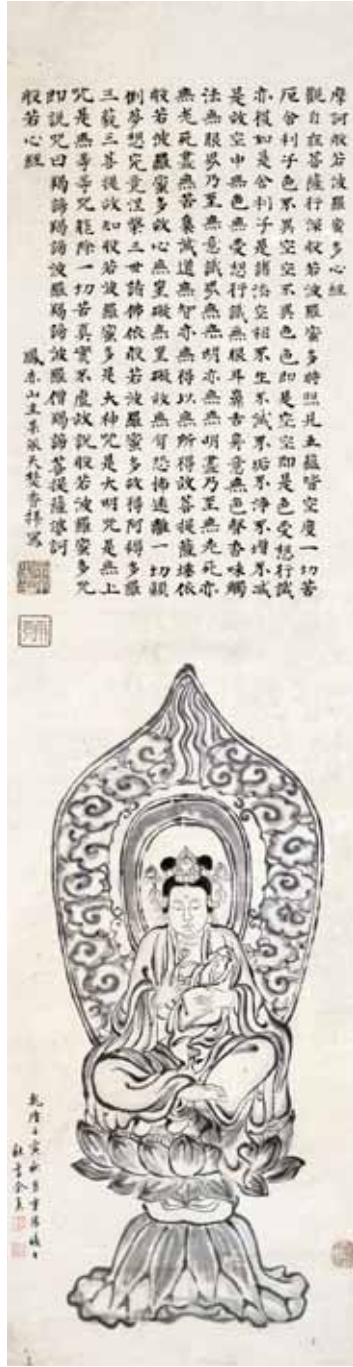 摩訶般若波羅蜜多心經
觀自在菩薩行深般若波羅蜜多時照見五蘊皆空度一切苦
厄舍利子色不異空空不異色色即是空空即是色受想行識
亦復如是舍利子是諸法空相不生不滅不垢不淨不增不減
是故空中無色無受想行識無眼耳鼻舌身意無色聲香味觸
法無眼界乃至無意識界無無明亦無無明盡乃至無老死亦
無老死盡無苦集滅道無智亦無得以無所得故菩提薩埵依
般若波羅蜜多故心無罣礙無罣礙故無有恐怖遠離一切顛
倒夢想究竟涅槃三世諸佛依般若波羅蜜多故得阿耨多羅
三藐三菩提故如般若波羅蜜多是大神咒是大明咒是無上
咒是無等等咒能除一切苦真實不虛故說般若波羅蜜多咒
即說咒曰揭諦揭諦波羅揭諦波羅僧揭諦菩提薩婆訶
般若心經
山主 焚香拜寫
乾隆 寅秋 重陽